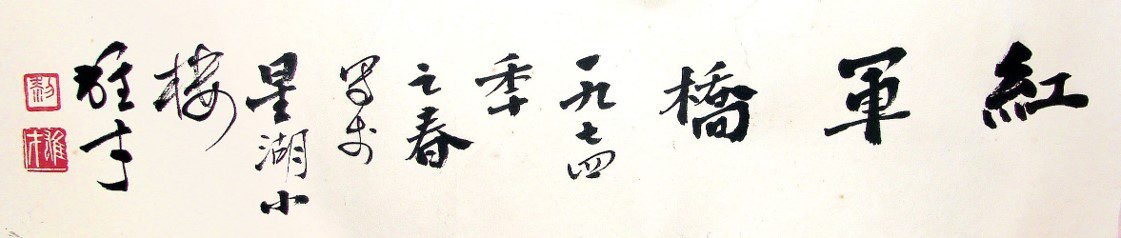 紅軍橋
一九七四
秊
之春
寫於
星湖小
樓
雄才
黎
雄才